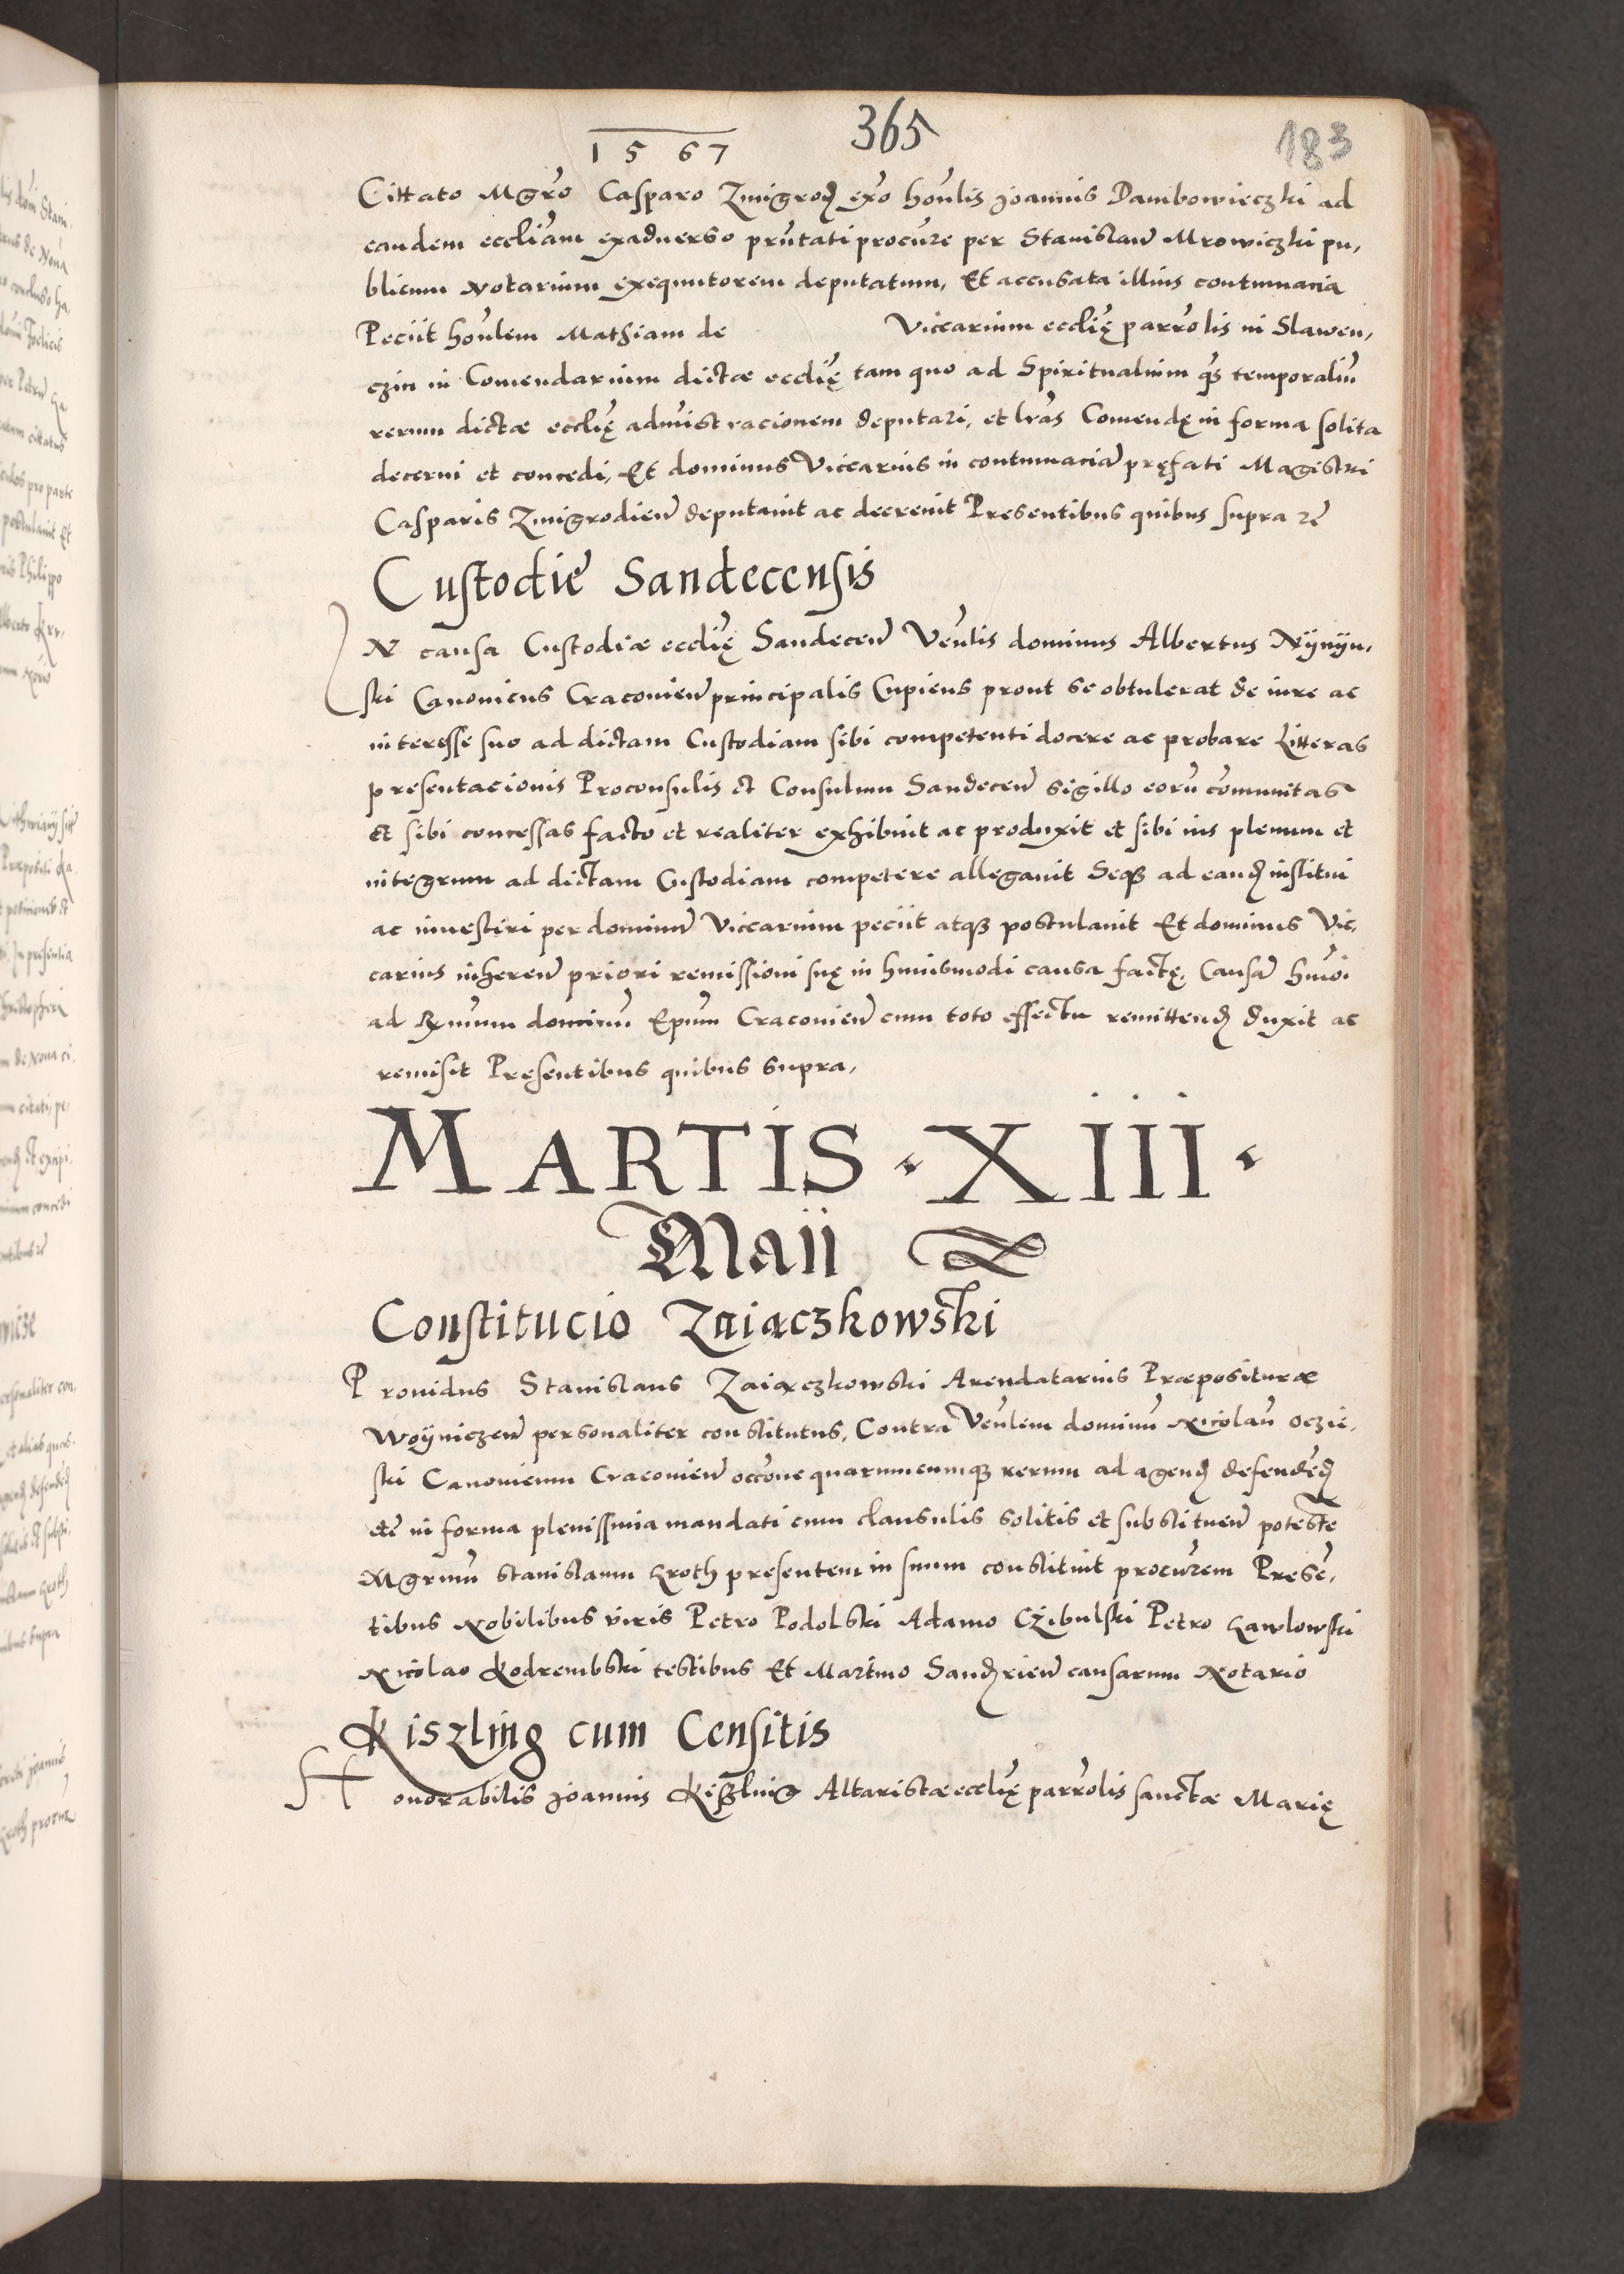 1567 365 183
Cittato Mgro Casparo Zmigrod exo honlis Joannis Dambowieczki ad
eandem eccliam exaduerso prntati procure per Stanislaw Mrowiczki pu,
blicum Notarium exequutorem deputatum, Et accusata illius contumacia
Peciit honlem Mathiam de Viccarium ecclię parrolis in Slawen,
czin in Comendarium dictæ ecclię tam quo ad Spiritualium qs temporaliu
rerum dictæ ecclię administracionem deputari, et lras Comendę in forma solita
decerni et concedi, Et dominus Viccarius in contumacia pręfati Magistri
Casparis Zmigrodien deputauit ac decreuit Presentibus quibus supra rc
Custodie Sandecensis
IN causa Custodiæ ecclię Sandecen Venlis dominus Albertus Nÿnÿn,
ski Canonicus Cracouien principalis Cupiens prout se obtulerat de iure ac
interesse suo ad dictam Custodiam sibi competenti docere ac probare Litteras
presentacionis Proconsulis et Consulum Sandecen sigillo eoru comunitas
et sibi concessas facto et realiter exhibuit ac produxit et sibi ius plenum et
integrum ad dictam Custodiam competere allegauit Seqз ad eand institui
ac inuestiri per dominu Viccarium peciit atqз postulauit Et dominus Vic,
carius inheren priori remissioni suę in huiusmodi causa factę, Causa hmoi
ad Rmum dominu Epum Cracouien cum toto effectu remittend duxit ac
remisit Pręsentibus quibus supra,
MARTIS · XIII ·
Maii
Constitucio Zaiaczkowski
Prouidus Stanislaus Zaiaczkowski Arendatarius Præposituræ
Woÿniczen personaliter constitutus, Contra Venlem dominu Nicolau Oczie,
ski Canonicum Cracouien occone quarumcumqз rerum ad agend defended
etc in forma plenissima mandati cum clausulis solitis et substituen poteste
Mgrum Stanislaum Kroth presentem in suum constituit procurem Prese,
tibus Nobilibus viris Petro Podolski Adamo Czibulski Petro Gawlowski
Nicolao Kodrembski testibus Et Martino Sandrien causarum Notario
Kiszling cum Censitis
Honorabilis Joannis Kiszling Altaristæ ecclię parrolis sanctæ Marię